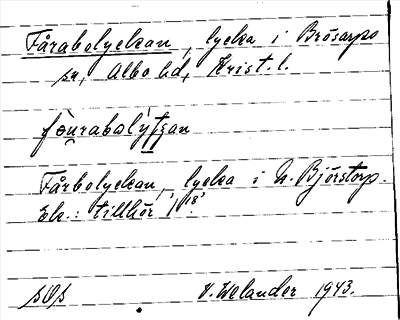 Fårabolyckan, lycka i Brösarps
sn, Albo hd, Krist. l.
Fårbolyckan, lycka i N. Björstorp.
Ek.: tillhör 1/18.
V. Welander 1943.